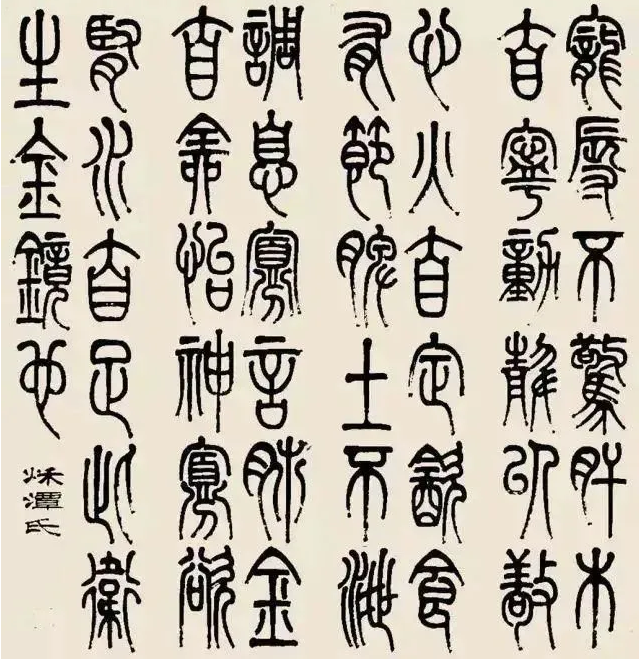 寵辱不驚肝木
自寧動靜以敬
心火自定飲食
有節脾土不泄
調息寡言肺金
自全怡神寡欲
腎水自足此衛
生金鏡也
秋潭氏